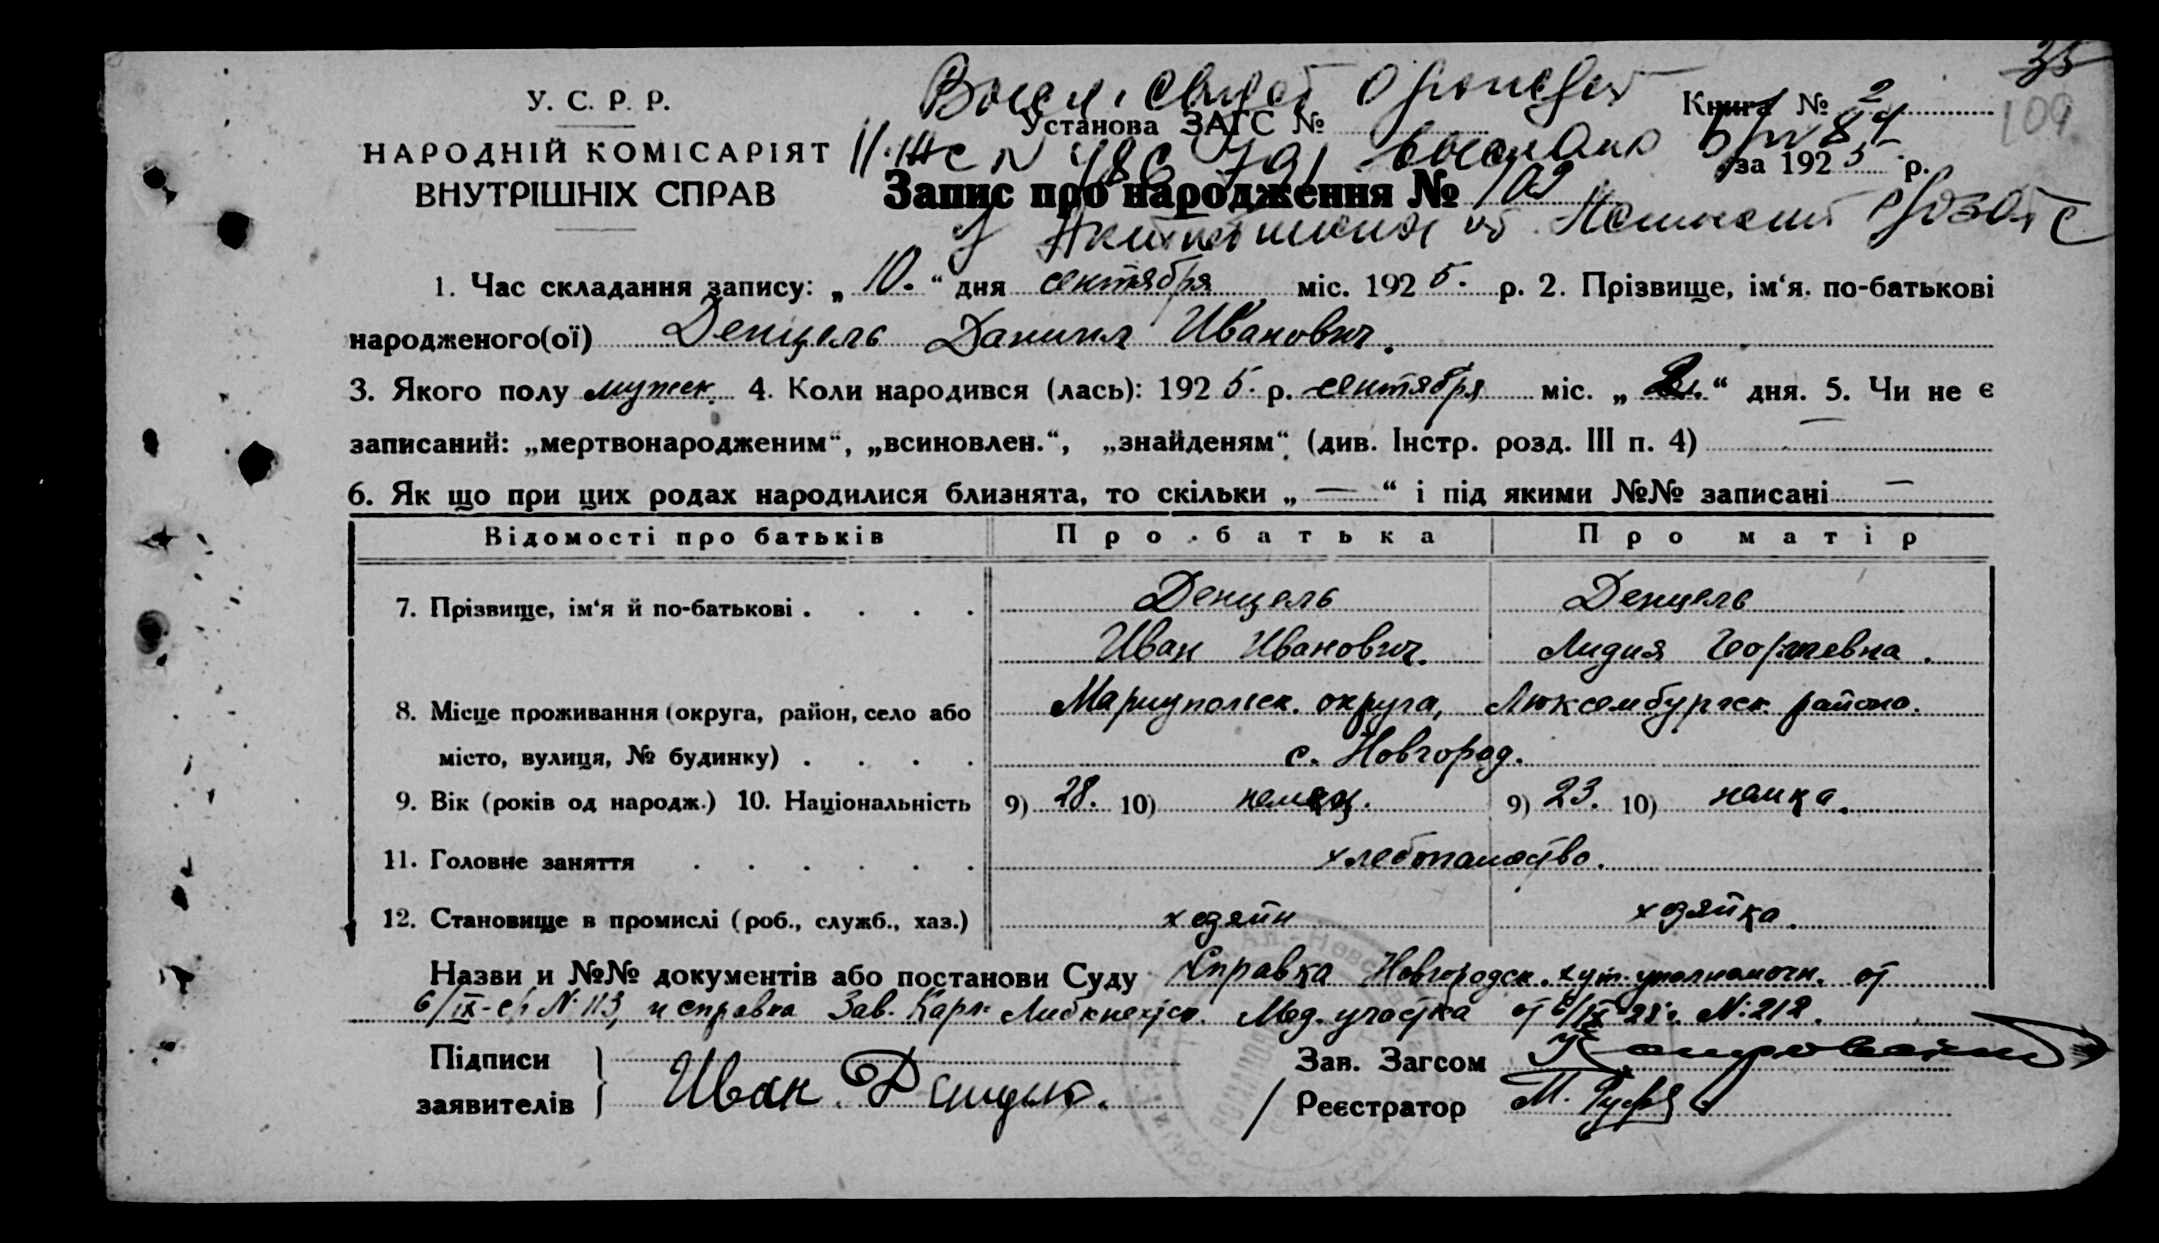 35
109
У. С. Р. Р.
НАРОДНІЙ КОМІСАРІЯТ
ВНУТРІШНІХ СПРАВ
Установа ЗАГС №
Книга № 2
за 1925 р.
Запис про народження № 102
1. Час складання запису: „ 10. “ дня сентября міс. 1925. р. 2. Прізвище, ім‘я. по-батькові
народженого(ої) Денцель Даниил Иванович.
3. Якого полу мужск. 4. Коли народився (лась): 1925. р. сентября міс. „ 2. “ дня. 5. Чи не є
записаний: „мертвонародженим“, „всиновлен.“, „знайденям“ (див. Інстр. розд. III п. 4) —
6. Як що при цих родах народилися близнята, то скільки „ — “ і під якими №№ записані —
Відомості про батьків Про батька Про матір
7. Прізвище, ім‘я й по-батькові . . . . Денцель Денцель
Иван Иванович. Лидия Георгиевна.
8. Місце проживання (округа, район, село або Мариупольск. округа, Люксембургск. района.
місто, вулиця, № будинку) . . . . с. Новгород.
9. Вік (років од народж.) 10. Національність 9) 28. 10) немец. 9) 23. 10) немка.
11. Головне заняття . . . . . . хлебопашество.
12. Становище в промислі (роб., служб., хаз.) хозяин хозяйка.
Назви и №№ документів або постанови Суду Справка Новгородск. хут. уполномочн. от
6/IX- № 113, и справка Зав. Карл-Либкнехтск. Мед. участка от 6/IX № 212.
Підписи
заявителів Иван Денцель.
Зав. Загсом
Реєстратор